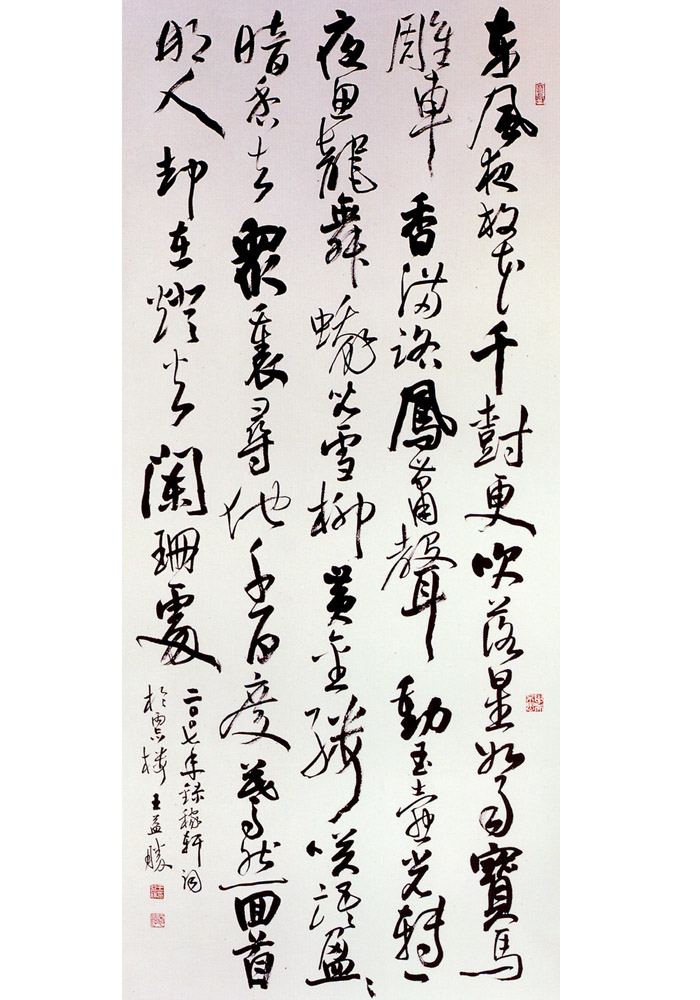 東風夜放花千樹更吹落星如雨寶馬
雕車香滿路鳳簫聲動玉壺光轉一
夜魚龍舞蛾兒雪柳黃金縷咲語盈々
暗香去眾裏尋他千百度驀然回首
那人却在燈火闌珊處
二〇〇七年錄稼軒詞
於樓王益勝